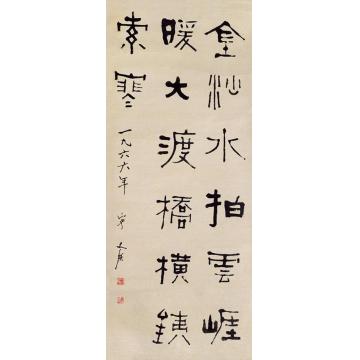 金沙水拍雲崕
暖大渡橋橫銕
索寒
一九六六年